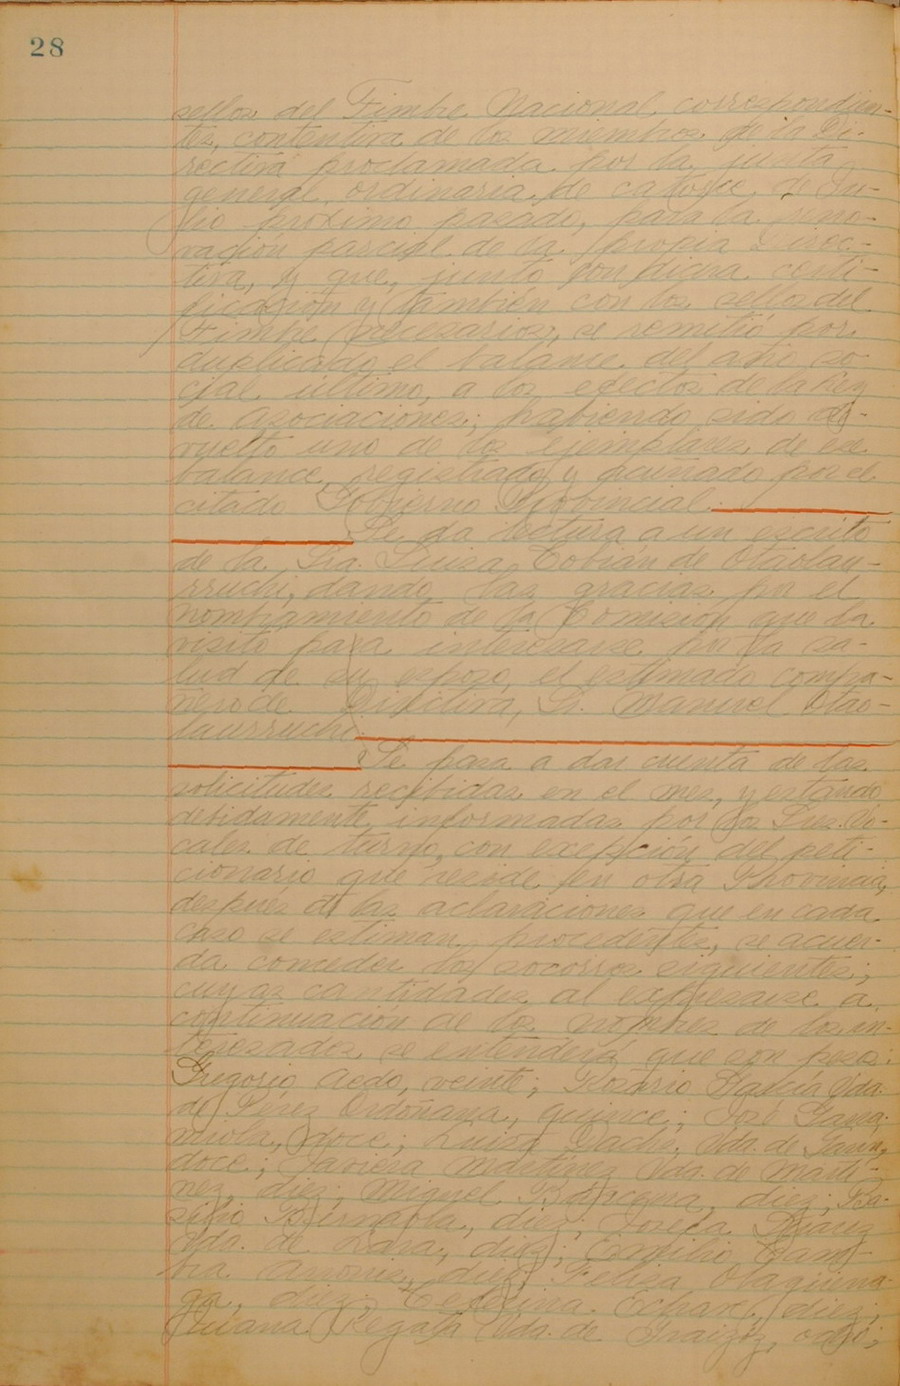 28
sellos del Timbre Nacional correspondien-
tes, contentiva de los miembros de la Di-
rectiva proclamada por la junta
general ordinaria de catorce de Ju-
lio próximo pasado, para la reno-
vación parcial de la propia Direc-
tiva, y que, junto con dicha certi-
ficación y también con los sellos del
Timbre necesarios, se remitió por
duplicado el balance del año so-
cial último, a los efectos de la Ley
de Asociaciones; habiendo sido de-
vuelto uno de los ejemplares de ese
balance, registrado y acuñado por el
citado Gobierno Provincial.
Se da lectura a un escrito
de la Sra. Luisa Tobián de Otaolau-
rruchi, dando las gracias por el
nombramiento de la Comisión que la
visitó para interesarse por la sa-
lud de su esposo, el estimado compa-
ñero de Directiva, Sr. Manuel Otao-
laurruchi.
Se pasa a dar cuenta de las
solicitudes recibidas en el mes, y estando
debidamente informadas por los Sres. Vo-
cales de turno, con excepción del peti-
cionario que reside en otra Provincia,
después de las aclaraciones que en cada
caso se estiman procedentes, se acuer-
da conceder los socorros siguientes;
cuyas cantidades al expresarse a
continuación de los nombres de los in-
teresados, se entenderá que son pesos:
Gregorio Aedo, veinte; Rosario García Vda.
de Pérez Ordoñana, quince; José Gana-
rriola, doce; Luisa Vda. de
doce; Javiera Martínez Vda. de Martí-
nez, diez; Miguel Bárcena, diez; Ba-
silio Bernaola, diez; Josefa Suárez
Vda. de Lara, diez; Emilio
diez; Felisa Olaguena-
ga, diez; Ceferina Echave, diez;
Juana Regato Vda. de Iraizoz, ocho;